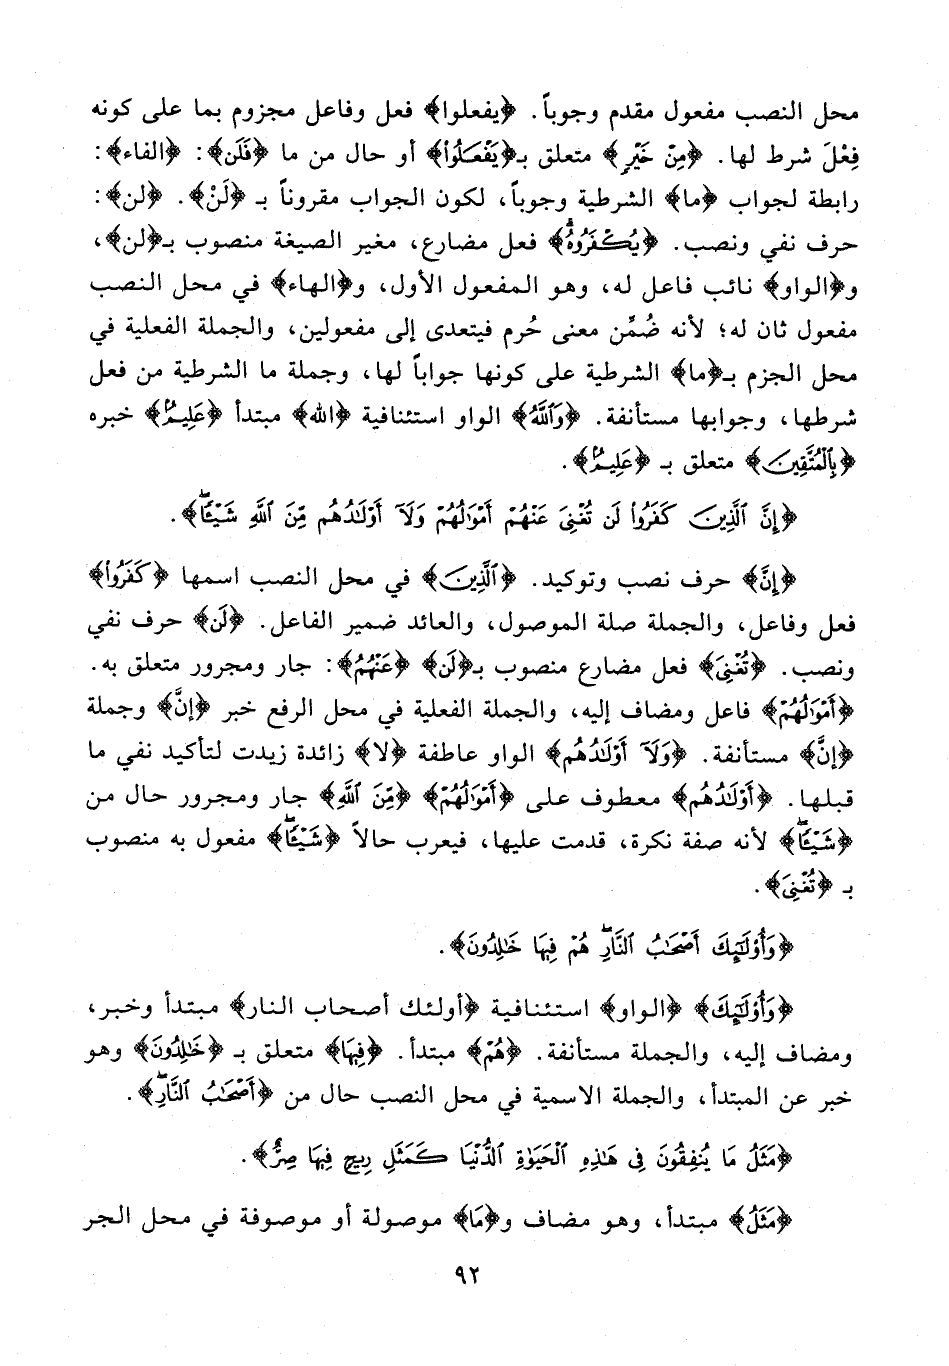 محل النصب مفعول مقدم وجوباً. ﴿يفعلوا﴾ فعل وفاعل مجزوم بما على كونه
فِعْلَ شرط لها. ﴿مِنْ خَيْرٍ﴾ متعلق بـ﴿يَفْعَلُوا۟﴾ أو حال من ما ﴿فَلَن﴾: ﴿الفاء﴾:
رابطة لجواب ﴿ما﴾ الشرطية وجوباً، لكون الجواب مقروناً بـ ﴿لَنْ﴾. ﴿لن﴾:
حرف نفي ونصب. ﴿يُكْفَرُوهُ﴾ فعل مضارع، مغير الصيغة منصوب بـ﴿لن﴾،
و﴿الواو﴾ نائب فاعل له، وهو المفعول الأول، و﴿الهاء﴾ في محل النصب
مفعول ثان له؛ لأنه ضُمِّن معنى حُرم فيتعدى إلى مفعولين، والجملة الفعلية في
محل الجزم بـ﴿ما﴾ الشرطية على كونها جواباً لها، وجملة ما الشرطية من فعل
شرطها، وجوابها مستأنفة. ﴿وَٱللَّهُ﴾ الواو استئنافية ﴿الله﴾ مبتدأ ﴿عَلِيمٌۢ﴾ خبره
﴿بِٱلْمُتَّقِينَ﴾ متعلق بـ ﴿عَلِيمٌۢ﴾.
﴿إِنَّ ٱلَّذِينَ كَفَرُوا۟ لَن تُغْنِىَ عَنْهُمْ أَمْوَٰلُهُمْ وَلَآ أَوْلَٰدُهُم مِّنَ ٱللَّهِ شَيْـًٔاۖ﴾.
﴿إِنَّ﴾ حرف نصب وتوكيد. ﴿ٱلَّذِينَ﴾ في محل النصب اسمها ﴿كَفَرُوا۟﴾
فعل وفاعل، والجملة صلة الموصول، والعائد ضمير الفاعل. ﴿لَن﴾ حرف نفي
ونصب. ﴿تُغْنِىَ﴾ فعل مضارع منصوب بـ﴿لَن﴾ ﴿عَنْهُمُ﴾: جار ومجرور متعلق به.
﴿أَمْوَٰلُهُمْ﴾ فاعل ومضاف إليه، والجملة الفعلية في محل الرفع خبر ﴿إنَّ﴾ وجملة
﴿إنَّ﴾ مستأنفة. ﴿وَلَآ أَوْلَٰدُهُم﴾ الواو عاطفة ﴿لا﴾ زائدة زيدت لتأكيد نفي ما
قبلها. ﴿أَوْلَٰدُهُم﴾ معطوف على ﴿أَمْوَٰلُهُمْ﴾ ﴿مِّنَ ٱللَّهِ﴾ جار ومجرور حال من
﴿شَيْـًٔاۖ﴾ لأنه صفة نكرة، قدمت عليها، فيعرب حالاً ﴿شَيْـًٔاۖ﴾ مفعول به منصوب
بـ ﴿تُغْنِىَ﴾.
﴿وَأُو۟لَٰٓئِكَ أَصْحَٰبُ ٱلنَّارِۖ هُمْ فِيهَا خَٰلِدُونَ﴾.
﴿وَأُو۟لَٰٓئِكَ﴾ ﴿الواو﴾ استئنافية ﴿أولئك أصحاب النار﴾ مبتدأ وخبر،
ومضاف إليه، والجملة مستأنفة. ﴿هُمْ﴾ مبتدأ. ﴿فِيهَا﴾ متعلق بـ ﴿خَٰلِدُونَ﴾ وهو
خبر عن المبتدأ، والجملة الاسمية في محل النصب حال من ﴿أَصْحَٰبُ ٱلنَّارِۖ﴾.
﴿مَثَلُ مَا يُنفِقُونَ فِى هَٰذِهِ ٱلْحَيَوٰةِ ٱلدُّنْيَا كَمَثَلِ رِيحٍ فِيهَا صِرٌّ﴾.
﴿مَثَلُ﴾ مبتدأ، وهو مضاف و﴿مَا﴾ موصولة أو موصوفة في محل الجر
٩٢